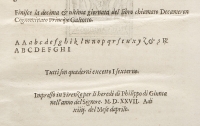 Finisce la decima & ultima giornata del libro chiamato Decameron
Cognominato principe Galeotto.
A A a b c d e f g h i k l m n o p q r s t u x y z & ꝯ
A B C D E F G H I
Tutti son quaderni eccetto I
Impresso in Firenze per li heredi di Philippo di Giunta
nell'anno del Signore. M. D. XXVII. Adi
xiiij. del Mese daprile.